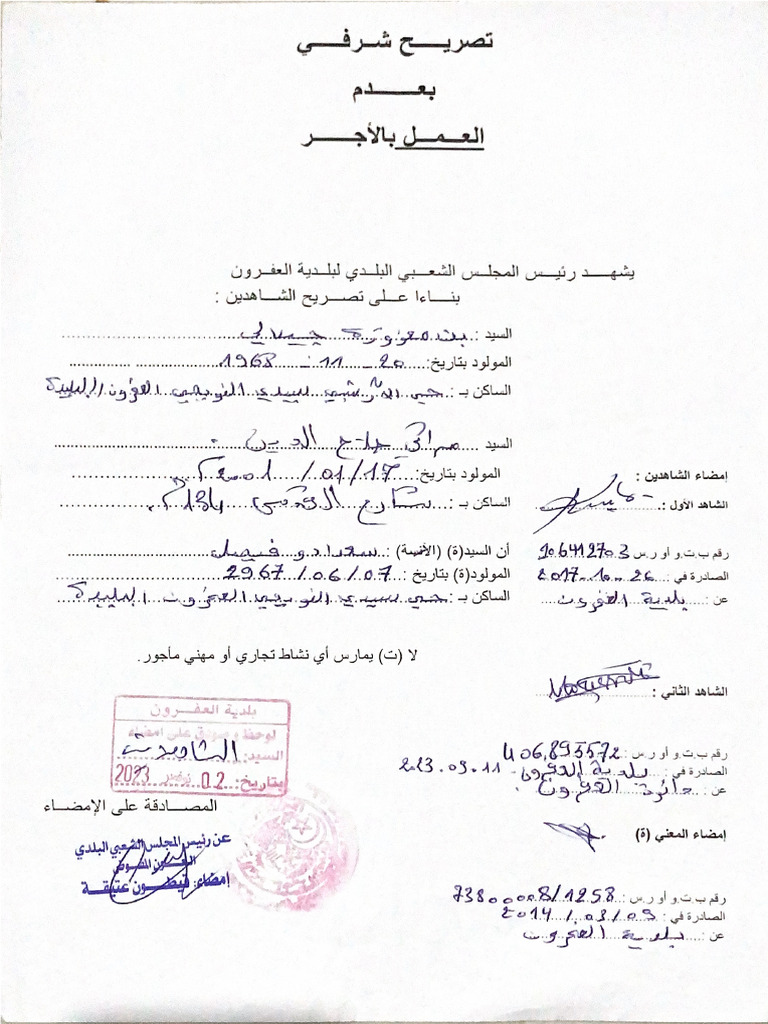 تصريح شرفي
بعدم
العمل بالأجر
يشهد رئيس المجلس الشعبي البلدي لبلدية العفرون
بناءا على تصريح الشاهدين :
السيد : بن معروف جيلالي
المولود بتاريخ: 20 - 11 - 1968
الساكن بـ : حي سيدي التويجي العفرون البليدة
السيد صلاح الدين
المولود بتاريخ: 17/01/2001
الساكن بـ : شارع
أن السيد(ة) (الآنسة) : سعدادو فيصل
المولود(ة) بتاريخ : 07/06/2967
الساكن بـ : حي سيدي التويجي العفرون البليدة
لا (ت) يمارس أي نشاط تجاري أو مهني مأجور.
إمضاء الشاهدين :
الشاهد الأول :
رقم ب.ت.و أو ر.س 206412703
الصادرة في : 26-10-2017
عن : بلدية العفرون
الشاهد الثاني :
رقم ب.ت.و أو ر.س : 406895572
الصادرة في : بلدية العفرون 2023.09.11
عن : دائرة العفرون
إمضاء المعني (ة)
رقم ب.ت.و أو ر.س : 73800008/1258
الصادرة في : 2014/03/09
عن : بلدية العفرون
بلدية العفرون
لوحظ و صودق على امضاء
السيد: الشاهدين
بتاريخ: 02 نوفمبر 2023
المصادقة على الإمضاء
عن رئيس المجلس الشعبي البلدي
العون المفوض
إمضاء: عتيقة